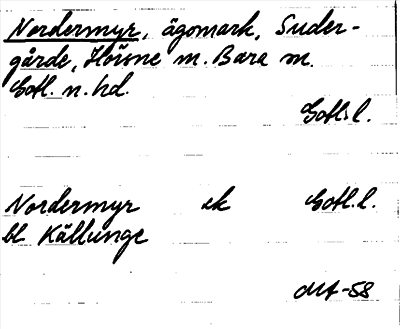 Nordermyr, ägomark, Suder-
gårde, Hörsne m. Bara m.
Gotl. n. hd.
Gotl.l.
Nordermyr ek Gotl.l.
bl Källunge
-58